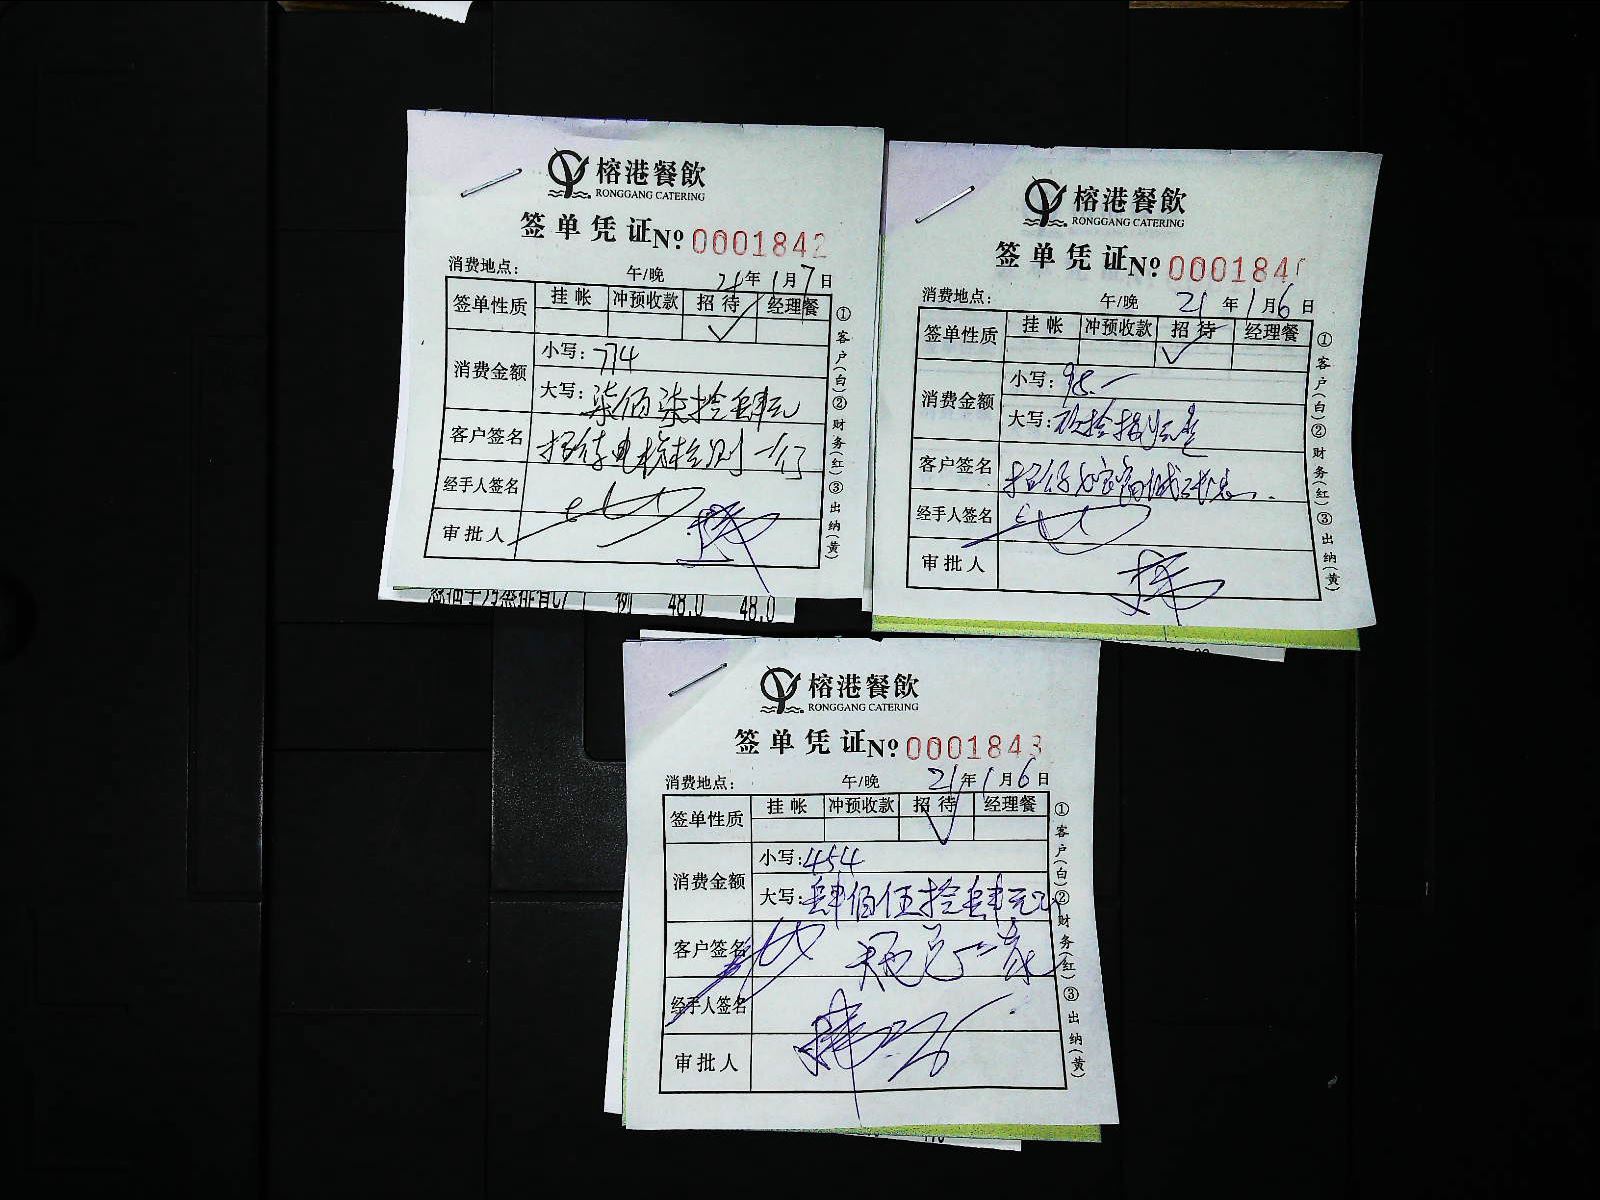 榕港餐飲
RONGGANG CATERING
签单凭证 Nº 0001842
消费地点： 午/晚 21年1月7日
签单性质 挂帐 冲预收款 招待 经理餐
✓
消费金额 小写：774
大写：柒佰柒拾肆元
客户签名 招待电梯检测一行
经手人签名
审批人
①客户(白)②财务(红)③出纳(黄)
48.0 48.0
榕港餐飲
RONGGANG CATERING
签单凭证 Nº 000184
消费地点： 午/晚 21年1月6日
签单性质 挂帐 冲预收款 招待 经理餐
✓
消费金额 小写：98.一
大写：
客户签名 招待
经手人签名
审批人
①客户(白)②财务(红)③出纳(黄)
榕港餐飲
RONGGANG CATERING
签单凭证 Nº 0001843
消费地点： 午/晚 21年1月6日
签单性质 挂帐 冲预收款 招待 经理餐
✓
消费金额 小写：454
大写：肆佰伍拾肆元
客户签名
经手人签名
审批人
①客户(白)②财务(红)③出纳(黄)